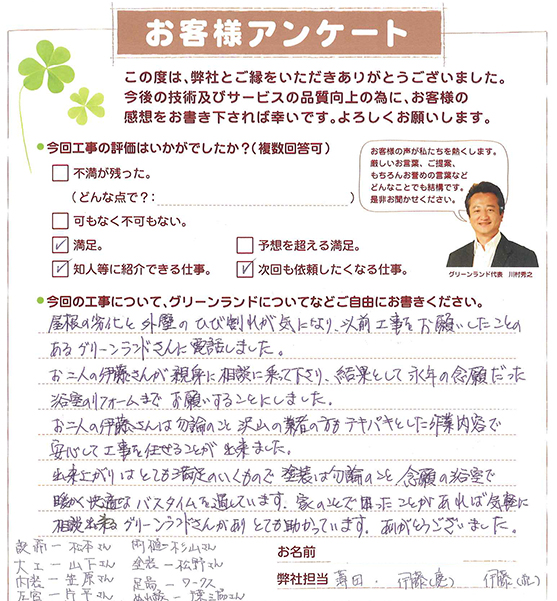 お客様アンケート
この度は、弊社とご縁をいただきありがとうございました。
今後の技術及びサービスの品質向上の為に、お客様の
感想をお書き下されば幸いです。よろしくお願いします。
●今回工事の評価はいかがでしたか?(複数回答可)
不満が残った。
(どんな点で?: )
可もなく不可もない。
✓満足。
予想を超える満足。
✓知人等に紹介できる仕事。
✓次回も依頼したくなる仕事。
お客様の声が私たちを熱くします。
厳しいお言葉、ご提案、
もちろんお誉めの言葉など
どんなことでも結構です。
是非お聞かせください。
グリーンランド代表 川村秀之
●今回の工事について、グリーンランドについてなどご自由にお書きください。
屋根の劣化と外壁のひび割れが気になり、以前工事をお願いしたことの
あるグリーンランドさんに電話しました。
お二人の伊藤さんが親身に相談に乗って下さり、結果として永年の念願だった
浴室のリフォームまでお願いすることにしました。
お二人の伊藤さんは勿論のこと沢山の業者の方もテキパキとした作業内容で
安心して工事を任せることが出来ました。
出来上がりはとても満足のいくもので塗装は勿論のこと念願の浴室で
暖かく快適なバスタイムを過しています。家のことで困ったことがあれば気軽に
相談出来るグリーンランドさんがありとても助かっています。ありがとうございました。
設備ー松本さん
雨樋ー杉山さん
大工ー山下さん
塗装ー松野さん
内装ー笠原さん
足場ーワークス
左官ー片平さん
お名前
弊社担当
伊藤 伊藤